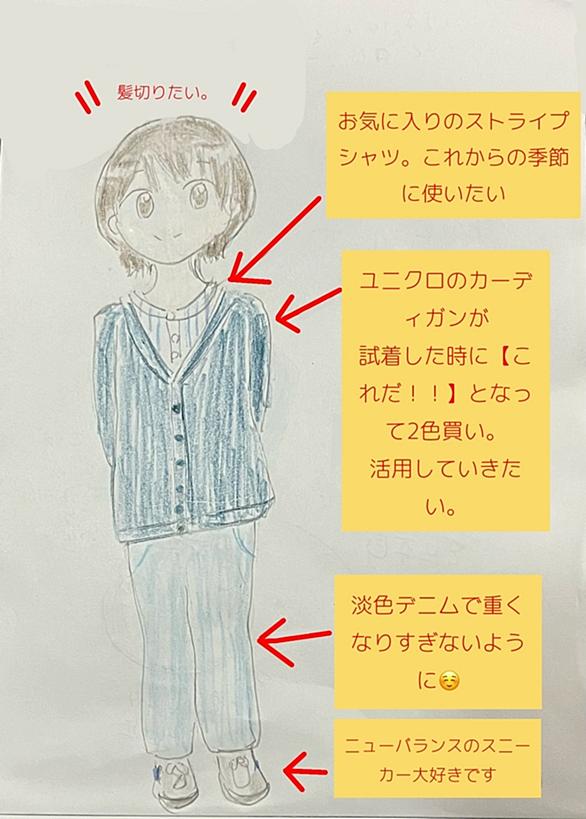 髪切りたい。
お気に入りのストライプ
シャツ。これからの季節
に使いたい
ユニクロのカーデ
ィガンが
試着した時に【こ
れだ！！】となっ
て2色買い。
活用していきた
い。
淡色デニムで重く
なりすぎないよう
に☺️
ニューバランスのスニー
カー大好きです